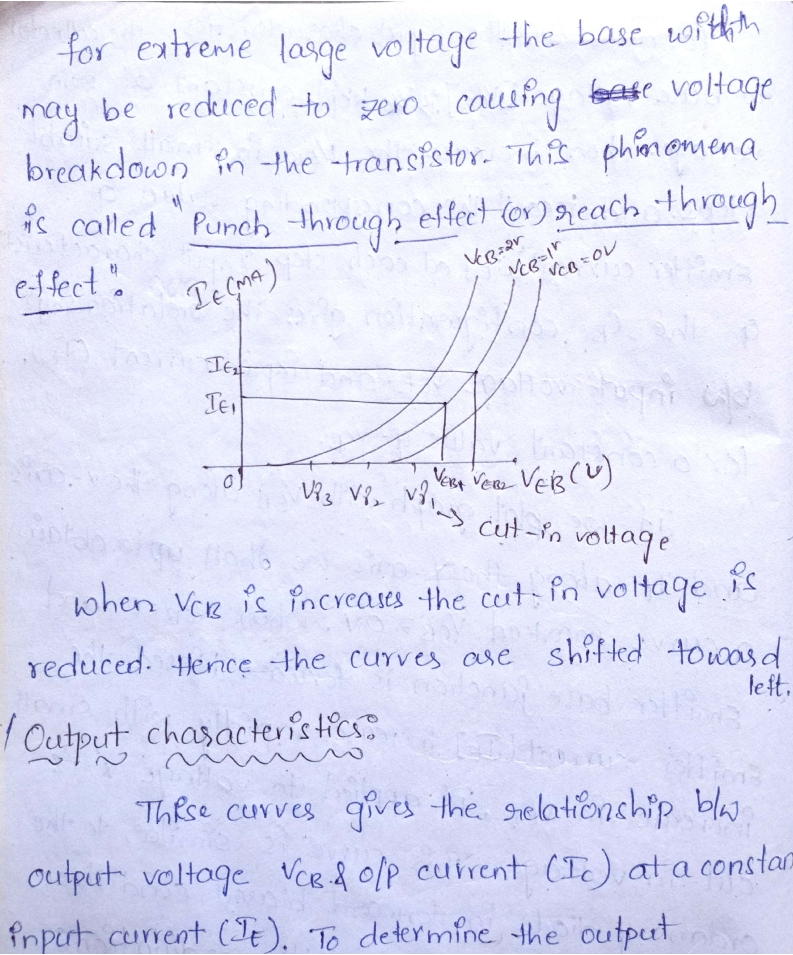 for extreme large voltage the base width
may be reduced to zero causing voltage
breakdown in the transistor. This phinomena
is called "Punch through effect (or) reach through
effect".
IE(MA)
VCB=2V
VCB=1V
VCB=0V
IE2
IE1
0
Vγ3 Vγ2 Vγ1 VEB1 VEB2 VEB(V)
→ cut-in voltage
when VCB is increases the cut-in voltage is
reduced. Hence the curves are shifted toward
left.
Output characteristics:
These curves gives the relationship b/w
output voltage VCB & o/p current (IC) at a constan
input current (IE). To determine the output